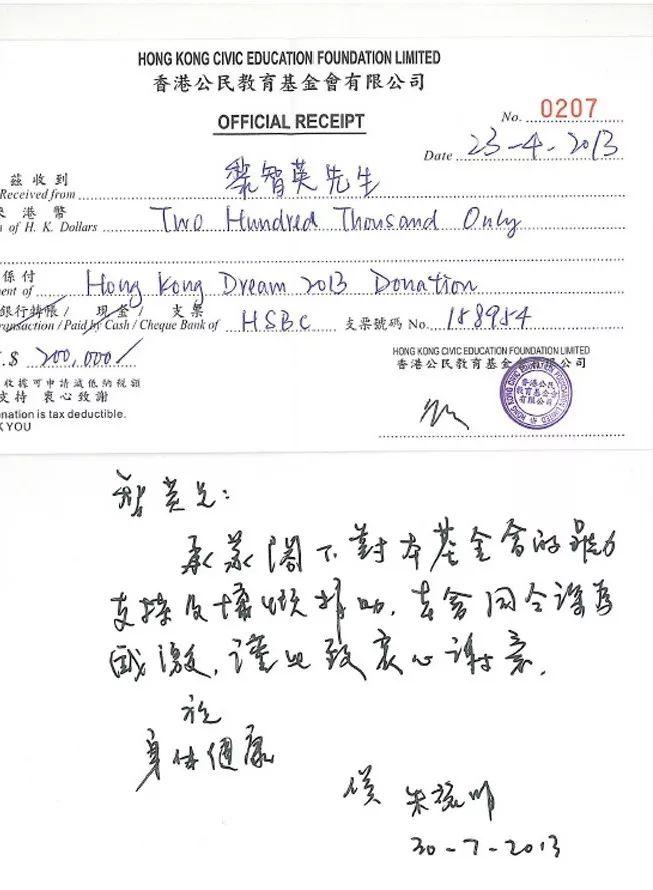 HONG KONG CIVIC EDUCATION FOUNDATION LIMITED
香港公民教育基金會有限公司
OFFICIAL RECEIPT
No. 0207
Date 23-4-2013
茲收到
Received from 黎智英先生
港幣
of H. K. Dollars Two Hundred Thousand Only
係付
ment of Hong Kong Dream 2013 Donation
銀行轉帳 / 現金 / 支票
ransaction / Paid by Cash / Cheque Bank of HSBC 支票號碼 No. 158984
.$ 200,000/
HONG KONG CIVIC EDUCATION FOUNDATION LIMITED
香港公民教育基金會有限公司
收據可申請減低納稅額
支持 衷心致謝
onation is tax deductible.
K YOU
香港公民
教育基金會
有限公司
智英兄：
承蒙閣下對本基金會的
支持及慷慨 助，
感激，謹此致衷心謝意，
祝
身体健康
朱耀明
30-7-2013